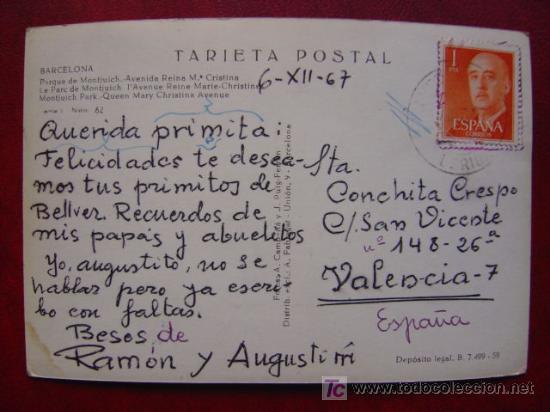 TARJETA POSTAL
BARCELONA
Parque de Montjuich.-Avenida Reina Mª Cristina
Le Parc de Montjuich. l'Avenue Reine Marie-Christine
Montjuich Park.-Queen Mary Christina Avenue
Núm. 62
6-XII-67
1
PTA
ESPAÑA
CORREOS
Querida primita:
Felicidades te desea-
mos tus primitos de
Bellver. Recuerdos de
mis papás y abuelitos
Yo, augustito, no se
hablar pero ya escri
bo con faltas.
Besos de
Ramón y Augustiñ
Sta.
Conchita Crespo
C/. San Vicente
nº 148-26ª
Valencia-7
España
Fotos A. Campañá y J. Puig-Ferrán
Unión, 9 - Barcelona
Depósito legal, B. 7.499-59
todocoleccion.net